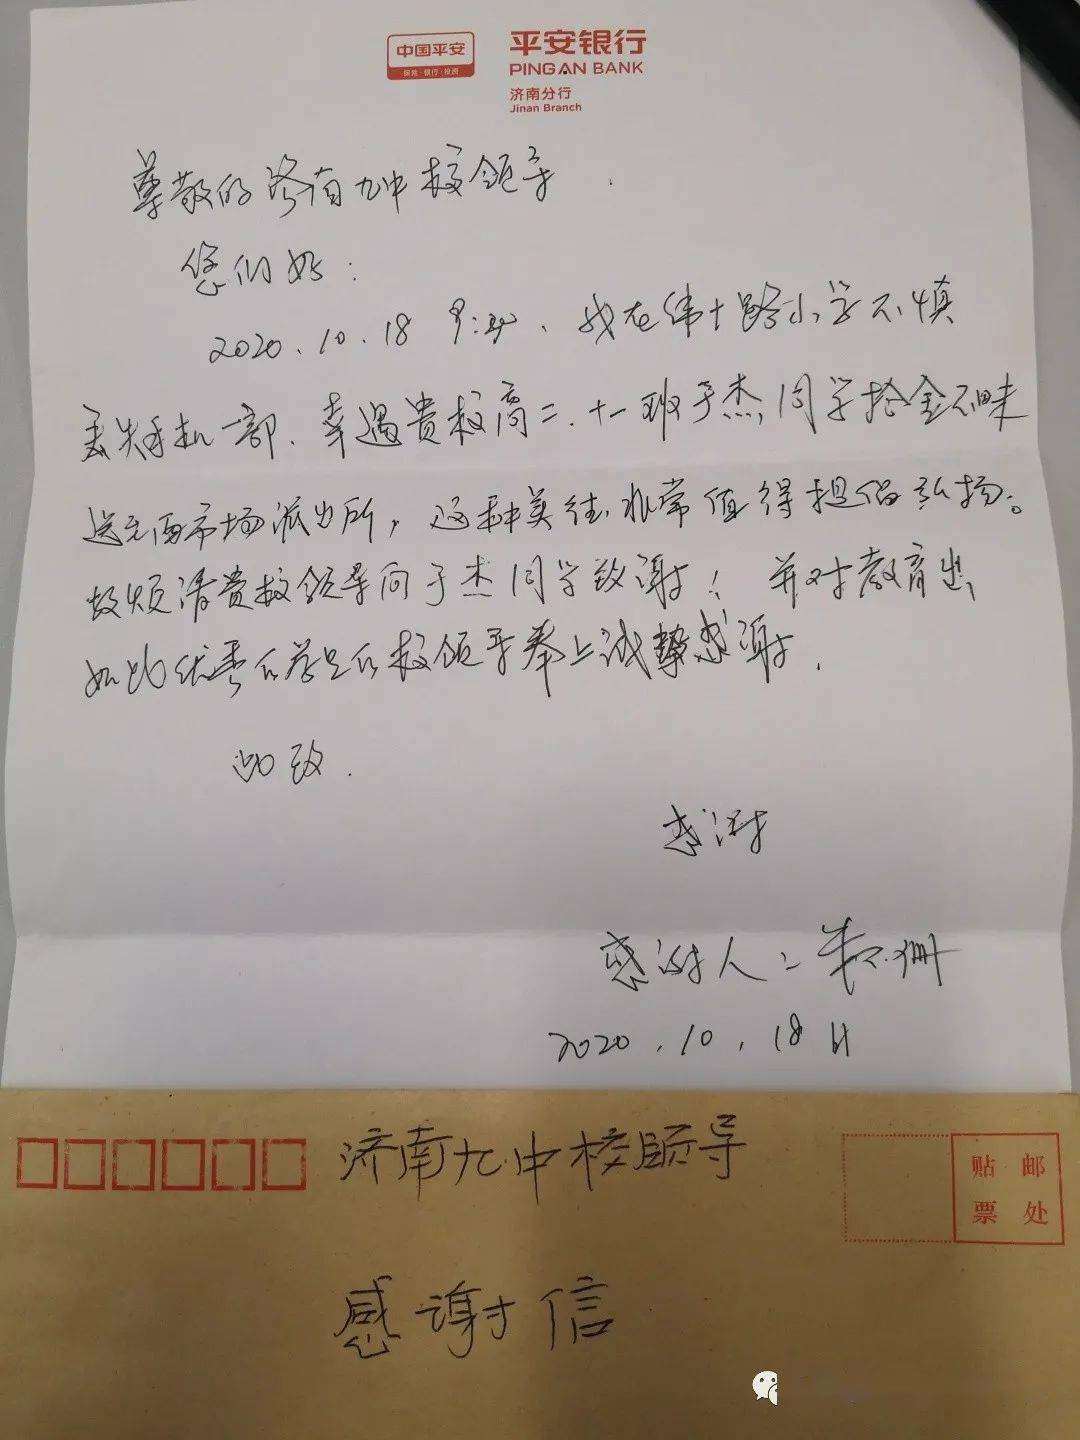 中国平安
保险·银行·投资
平安银行
PINGAN BANK
济南分行
Jinan Branch
尊敬的济南九中校领导
您们好：
2020.10.18 我在纬十路小学不慎
丢失手机一部、幸遇贵校高二.十一班于杰同学拾金不昧
送至西市场派出所，这种美德非常值得提倡弘扬。
故烦请贵校领导向于杰同学致谢！并对教育出
如此优秀的学生的校领导奉上诚挚感谢.
此致.
感谢
感谢人：朱 珊
2020.10.18日
济南九中校领导
贴 邮
票 处
感谢信